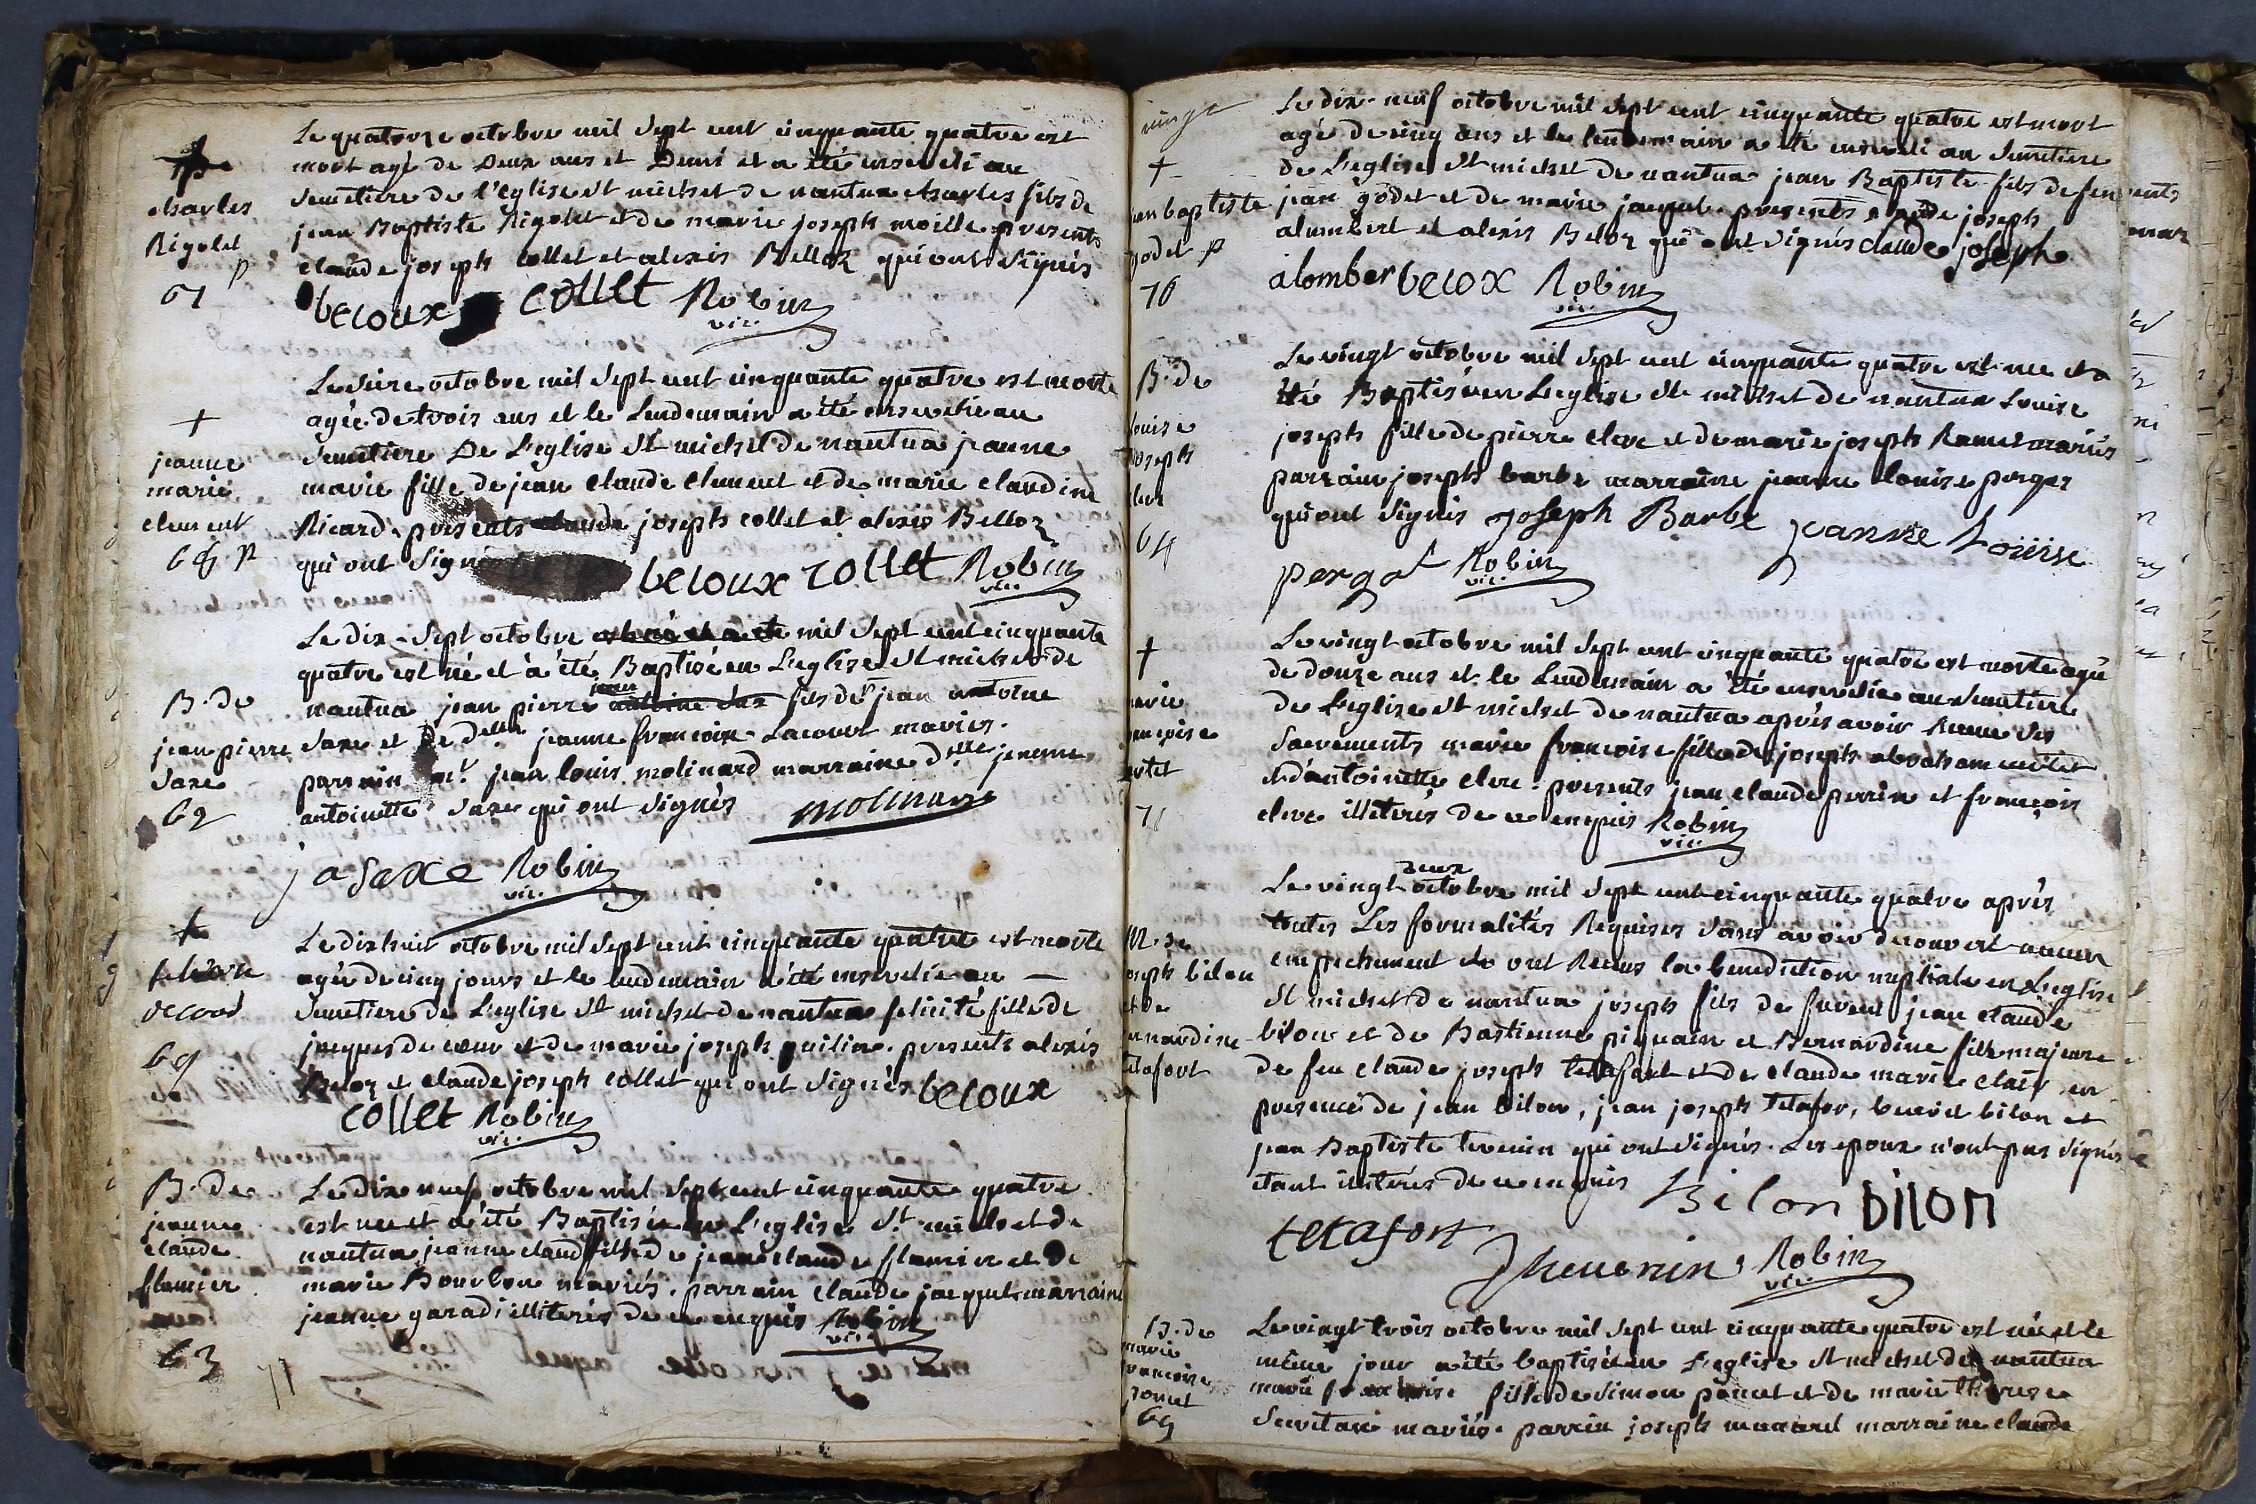 charles
Rigolet
p
67
Le quatorze octobre mil sept cent cinquante quatre est
mort agé de deux ans et demi et a été enseveli au
semetiere de l'eglise st michel de nantua charles fils de
jean Baptiste Rigolet et de marie joseph moille presents
claude joseph collet et alexis Belloz qui ont signés
becoux collet Robin
vic.
+
jeanne
marie
clement
68 p
Le seize octobre mil sept cent cinquante quatre est morte
agée de trois ans et le lendemain a été ensevelie au
semetiere De L'eglise st michel de nantua jeanne
marie fille de jean claude clement et de marie claudine
Ricard. presents claude joseph collet et alexis Belloz
qui ont signés
becoux collet Robin
vic.
B. de
jean pierre
saxe
62
Le dix-sept octobre est né et a été mil sept cent cinquante
quatre est né et a été Baptisé en L'eglise st michel de
nantua jean pierre antoine fils de jean antoine
saxe et de delle jeanne francoise Lacour mariés.
parrain mr. jean louis molinard marraine dlle jeanne
antoinette saxe qui ont signés molinard
j a saxe Robin
vic.
+
felicité
decoeur
69
Le dix huit octobre mil sept cent cinquante quatre est morte
agée de cinq jours et le lendemain a été ensevelie au
semetiere de L'eglise st michel de nantua felicité fille de
jacques de coeur et de marie joseph guilin. presents alexis
Beloz et claude joseph collet qui ont signés becoux
collet Robin
vic.
B. de
jeanne
claude
flamier
63
Le dix neuf octobre mil sept cent cinquante quatre
est nee et a été Baptisée en L'eglise st michel de
nantua jeanne claud fille de jean claude flamier et de
marie Bourbon mariés. parrain claude jacquet marraine
jeanne garadi illiterés de ce enquis Robin
vic.
71
vingt
+
jean baptiste
godet p
70
Le dix-neuf octobre mil sept cent cinquante quatre est mort
agé de cinq ans et le lendemain a été enseveli au semetiere
de L'eglise st michel de nantua jean Baptiste fils de feu
jean godet et de marie jacquet. presents claude joseph
alumbert et alexis Beloz qui ont signés claude joseph
alomber becox Robin
vic.
B. de
louise
joseph
cleve
64
Le vingt octobre mil sept cent cinquante quatre est nee et a
été Baptisée en L'eglise st michel de nantua Louise
joseph fille de pierre cleve et de marie joseph Ramel mariés
parrain joseph barbe marraine jeanne louise perget
qui ont signés joseph Barbe jeanne Loüise
pergat Robin
vic.
+
marie
françoise
71
Le vingt octobre mil sept cent cinquante quatre est morte agée
de douze ans et le Lendemain a été ensevelie au semetiere
de L'eglise st michel de nantua après avoir Receu ses
sacrements marie françoise fille de joseph abraham
et d'antoinette cleve. presents jean claude perrin et françois
cleve illiterés de ce enquis Robin
vic.
M. de
joseph bilon
et de
bernardine
tetafort
Le vingt deux octobre mil sept cent cinquante quatre après
toutes Les formalités Requises sans avoir decouvert aucun
empechement ont Receus la benediction nuptiale en L'eglise
st michel de nantua joseph fils de jean claude
bilon et de Bastienne et Bernardine fille majeure
de feu claude joseph tetafort et de claude marie clair en
presence de jean bilon, jean joseph tetafor, bilon et
jean Baptiste tevenin qui ont signés. Les epoux n'ont pas signés
etant illiterés de ce enquis Bilon bilon
tetafort
Theuenin Robin
vic.
B. de
marie
françoise
poncet
65
Le vingt trois octobre mil sept cent cinquante quatre est née et le
même jour a été baptisée en L'eglise st michel de nantua
marie françoise fille de simon poncet et de marie therese
mariés. parrain joseph marraine claude